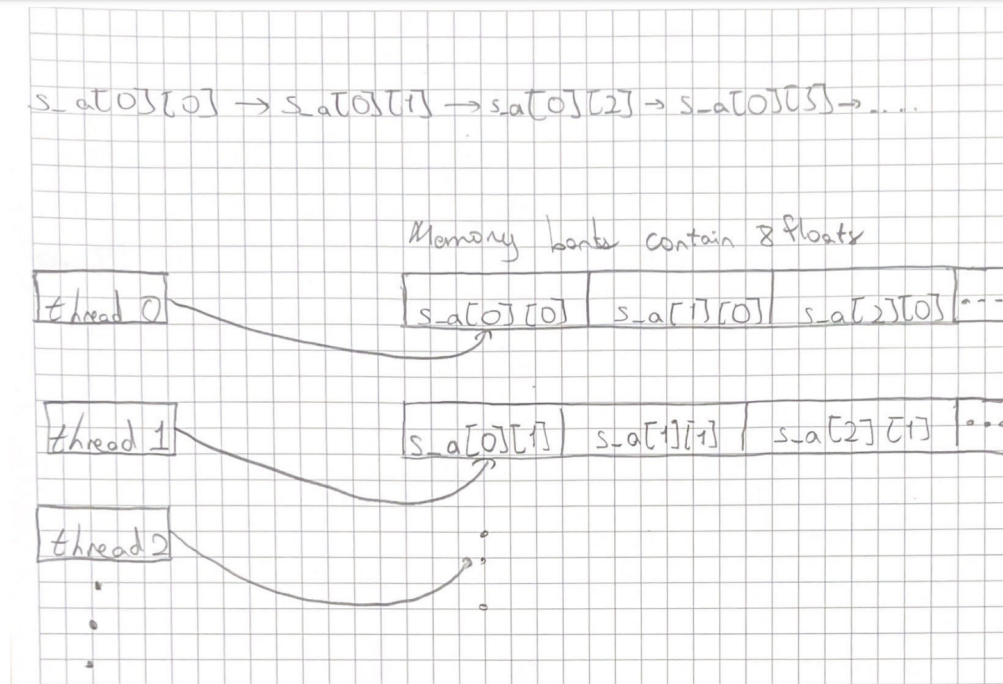 s_a[0][0] → s_a[0][1] → s_a[0][2] → s_a[0][3] → .....
Memory banks contain 8 floats
thread 0 s_a[0][0] s_a[1][0] s_a[2][0] ...
thread 1 s_a[0][1] s_a[1][1] s_a[2][1] ...
thread 2